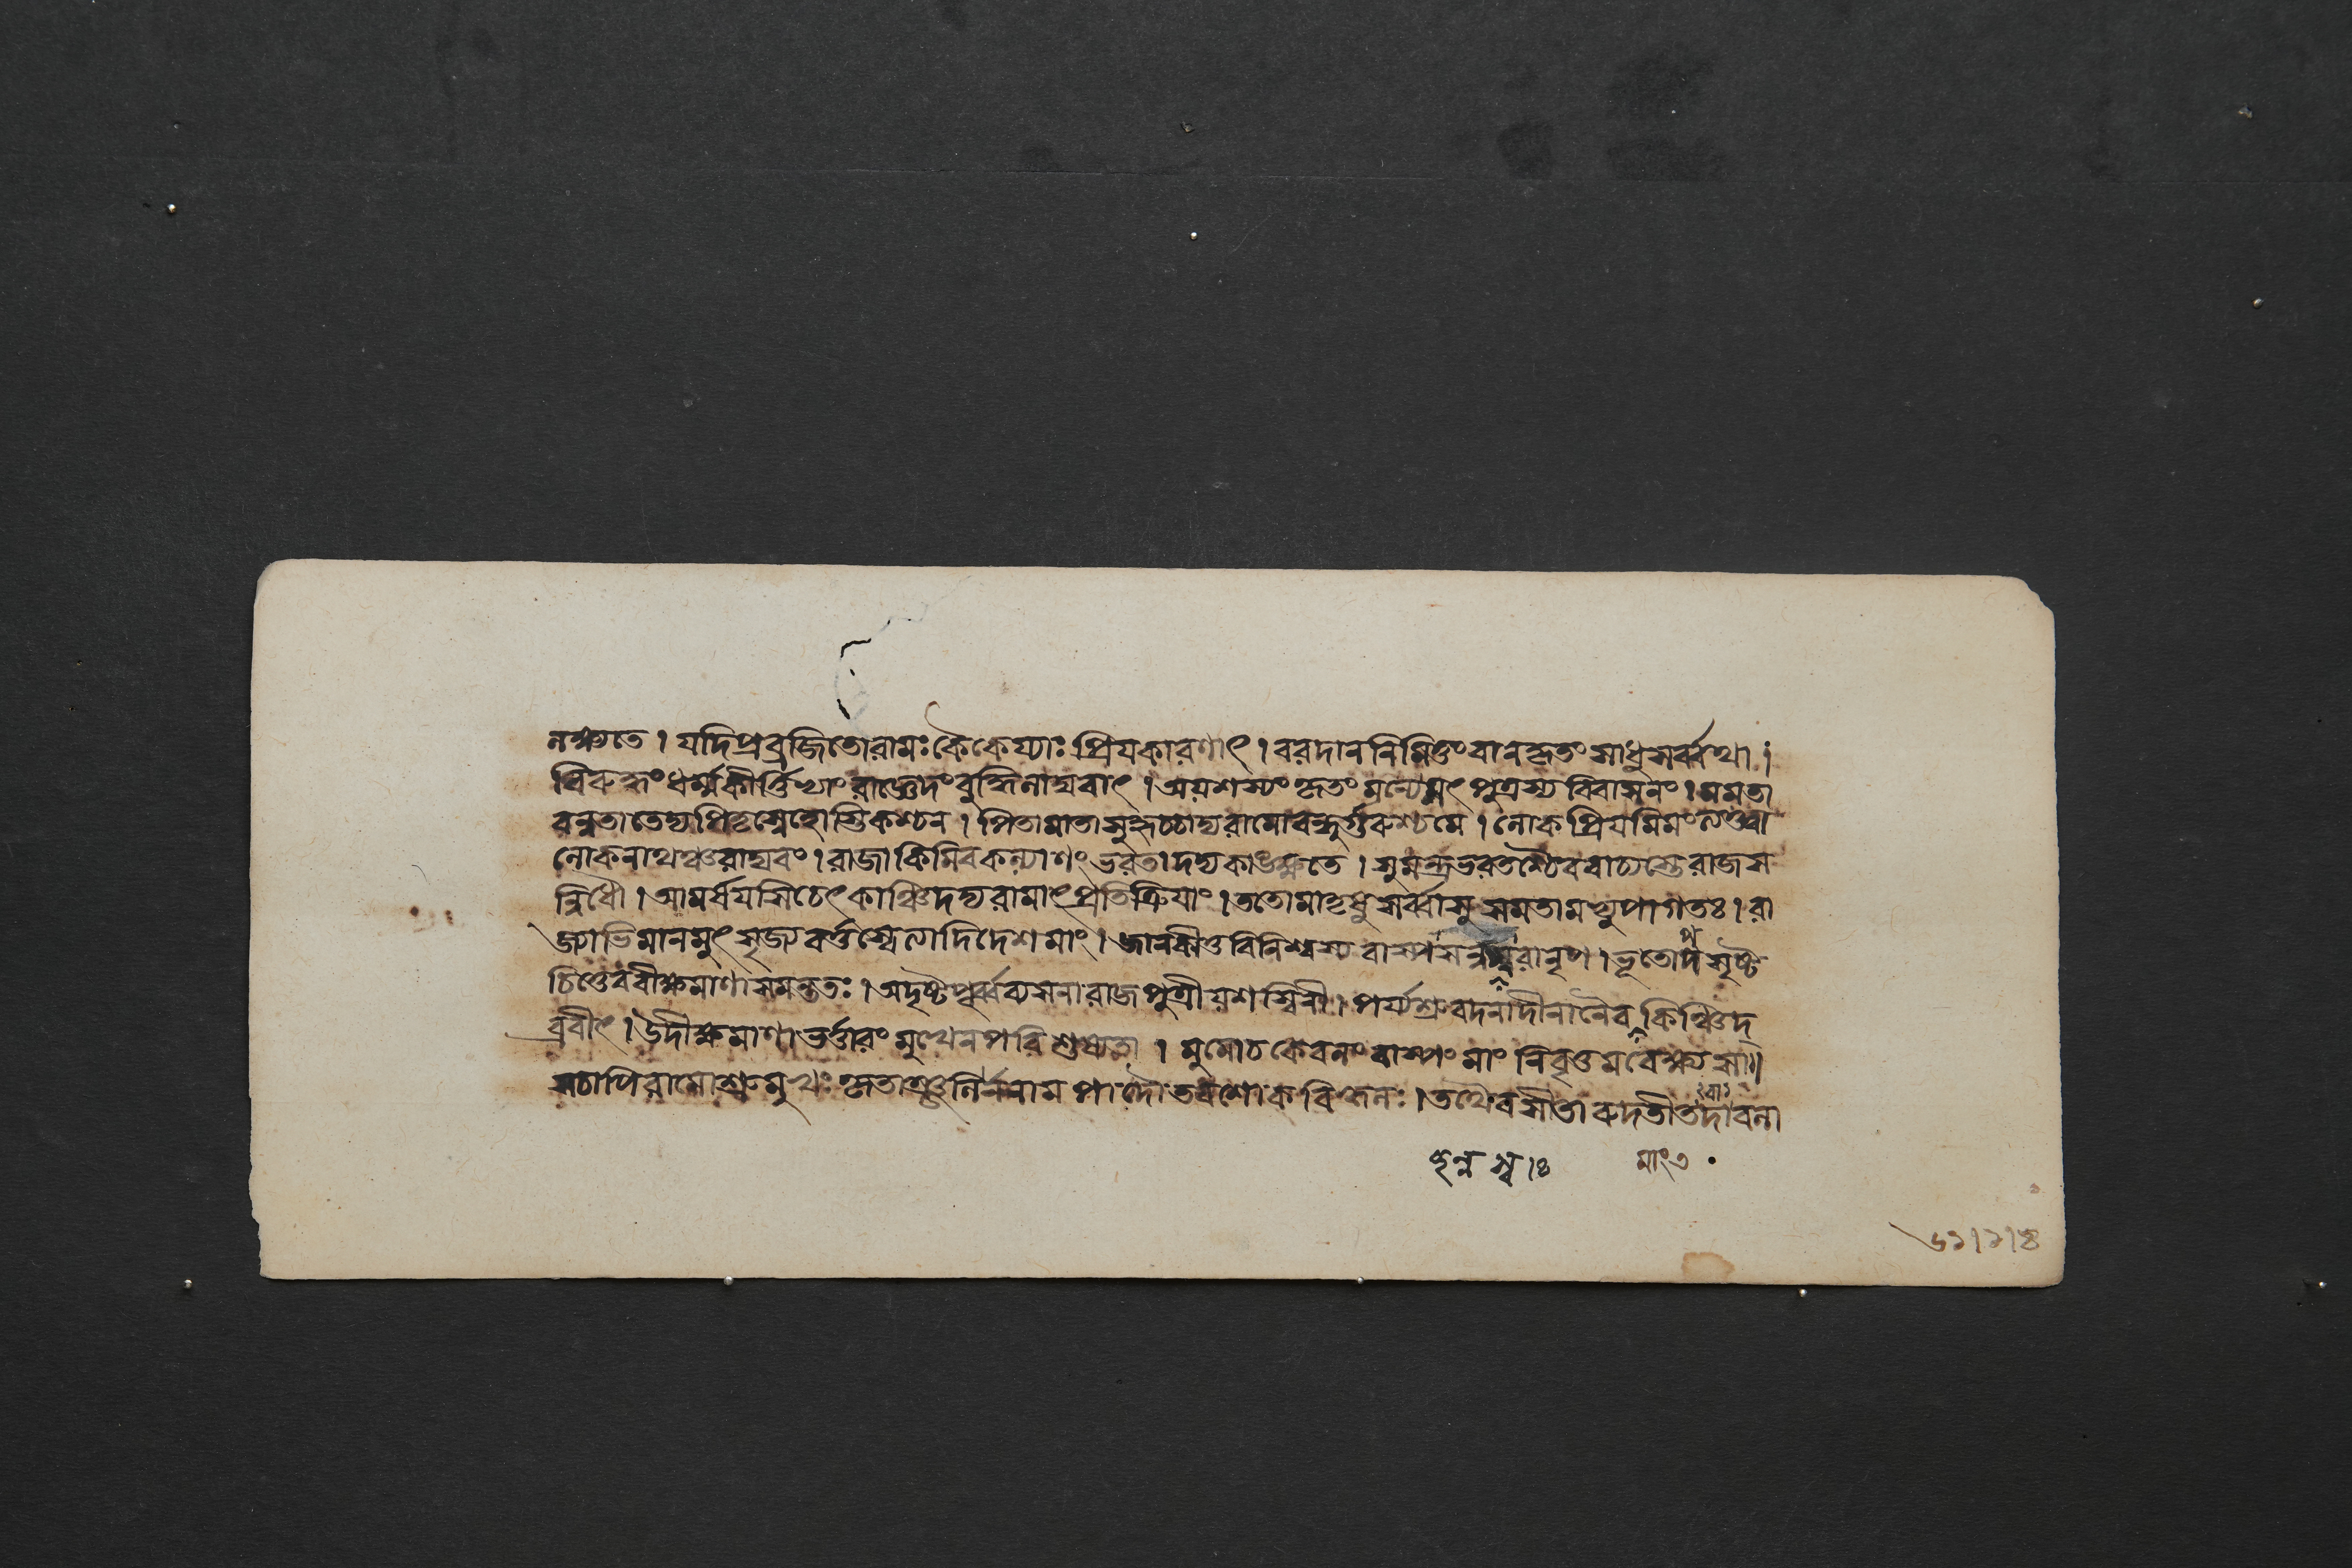 লক্ষ্যতে । যদিপ্রব্রজিতোরামঃকৈকেয্যাঃপ্রিযকারণাৎ । বরদাননিমিত্তংবানকৃতংসাধুসর্ব্বথা ।
বিরুদ্ধংধর্ম্মকীর্ত্তিভ্যাংরাজ্ঞেদংবুদ্ধিলাঘবাৎ । অযশস্যংকৃতংমন্যেসৎপুত্রস্যবিবাসনং । মমতা
বন্নতাতেদ্যপিতৃস্নেহোস্তিকশ্চন । পিতামাতাসুহৃচ্চাদ্যরামোবন্ধুর্গুরুশ্চমে । লোকপ্রিযমিমংত্যক্ত্বা
লোকনাথঞ্চরাঘবং । রাজাকিমিবকল্যাণংভরতাদদ্যকাঙ্ক্ষতে । সুমন্ত্রভরতশ্চৈববাচ্যস্তেরাজস
ন্নিধৌ । আমর্ষযসিচেৎকাঞ্চিদদ্যরামাৎপ্রতিক্রিযাং । ততোমাতৃষুসর্ব্বাসুসমতামভ্যুপাগতঃ । রা
জ্যাভিমানমুৎসৃজ্যবর্ত্তস্বেত্যাদিদেশমাং । জানকীতুবিনিশ্বস্যবাস্পসন্নস্বরানৃপ । ভূতোপসৃষ্ট
চিত্তেববীক্ষমাণাসমন্ততঃ । অদৃষ্টপূর্ব্বব্যসনারাজপুত্রীযশস্বিনী । পর্য্যশ্রুবদনাদীনানৈবকিঞ্চিদ্
ব্রবীৎ । উদীক্ষমাণাভর্ত্তারংমুখেনপরিশুষ্যতা । মুমোচকেবলংবাস্পংমাংনিবৃত্তমবেক্ষ্যসা॥
সচাপিরামোশ্রুমুখঃকৃতাঞ্জলির্ননামপাদৌতবশোকবিহ্বলঃ । তথৈবসীতারুদতীতদাবলা
মাং৩
৬১।১।৪